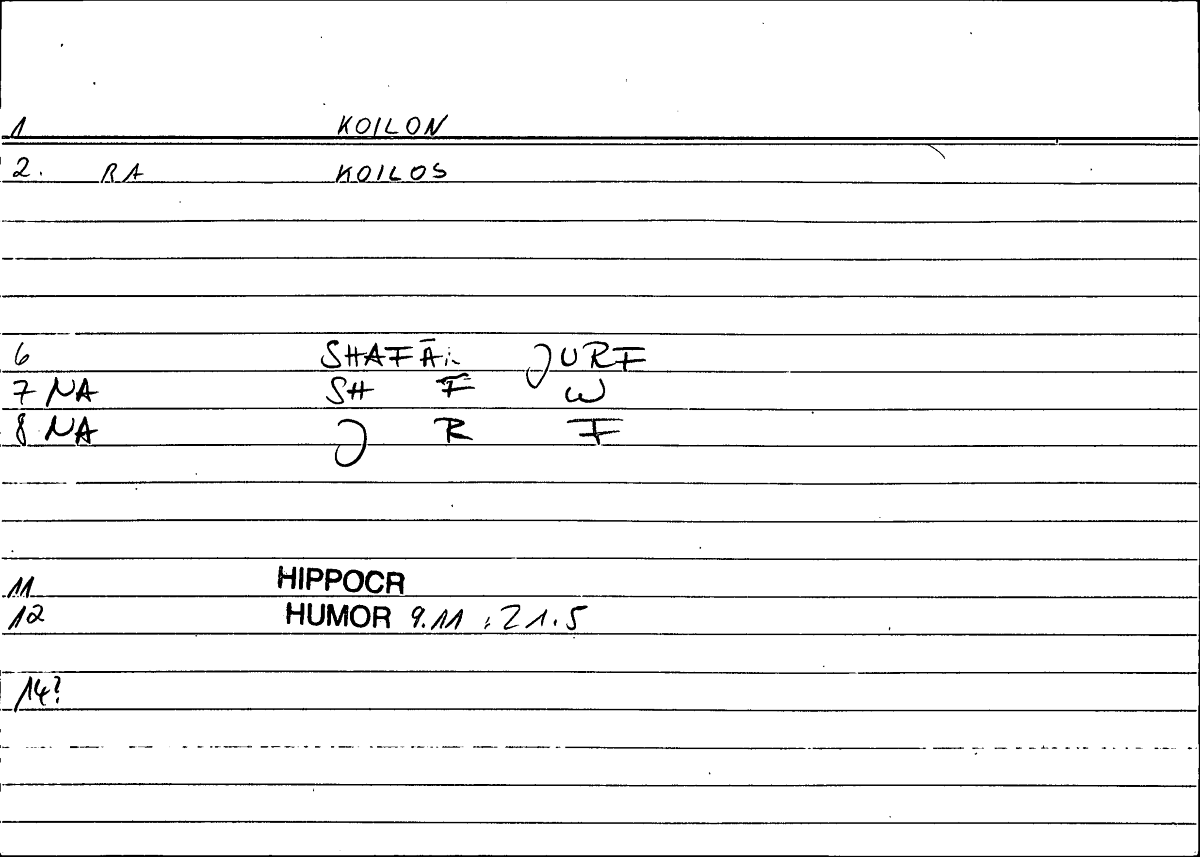 1 KOILON
2. RA KOILOS
6 SHAFĀ JURF
7 NA SH F W
8 NA J R F
11 HIPPOCR
12 HUMOR 9.11 ; 21.5
14?